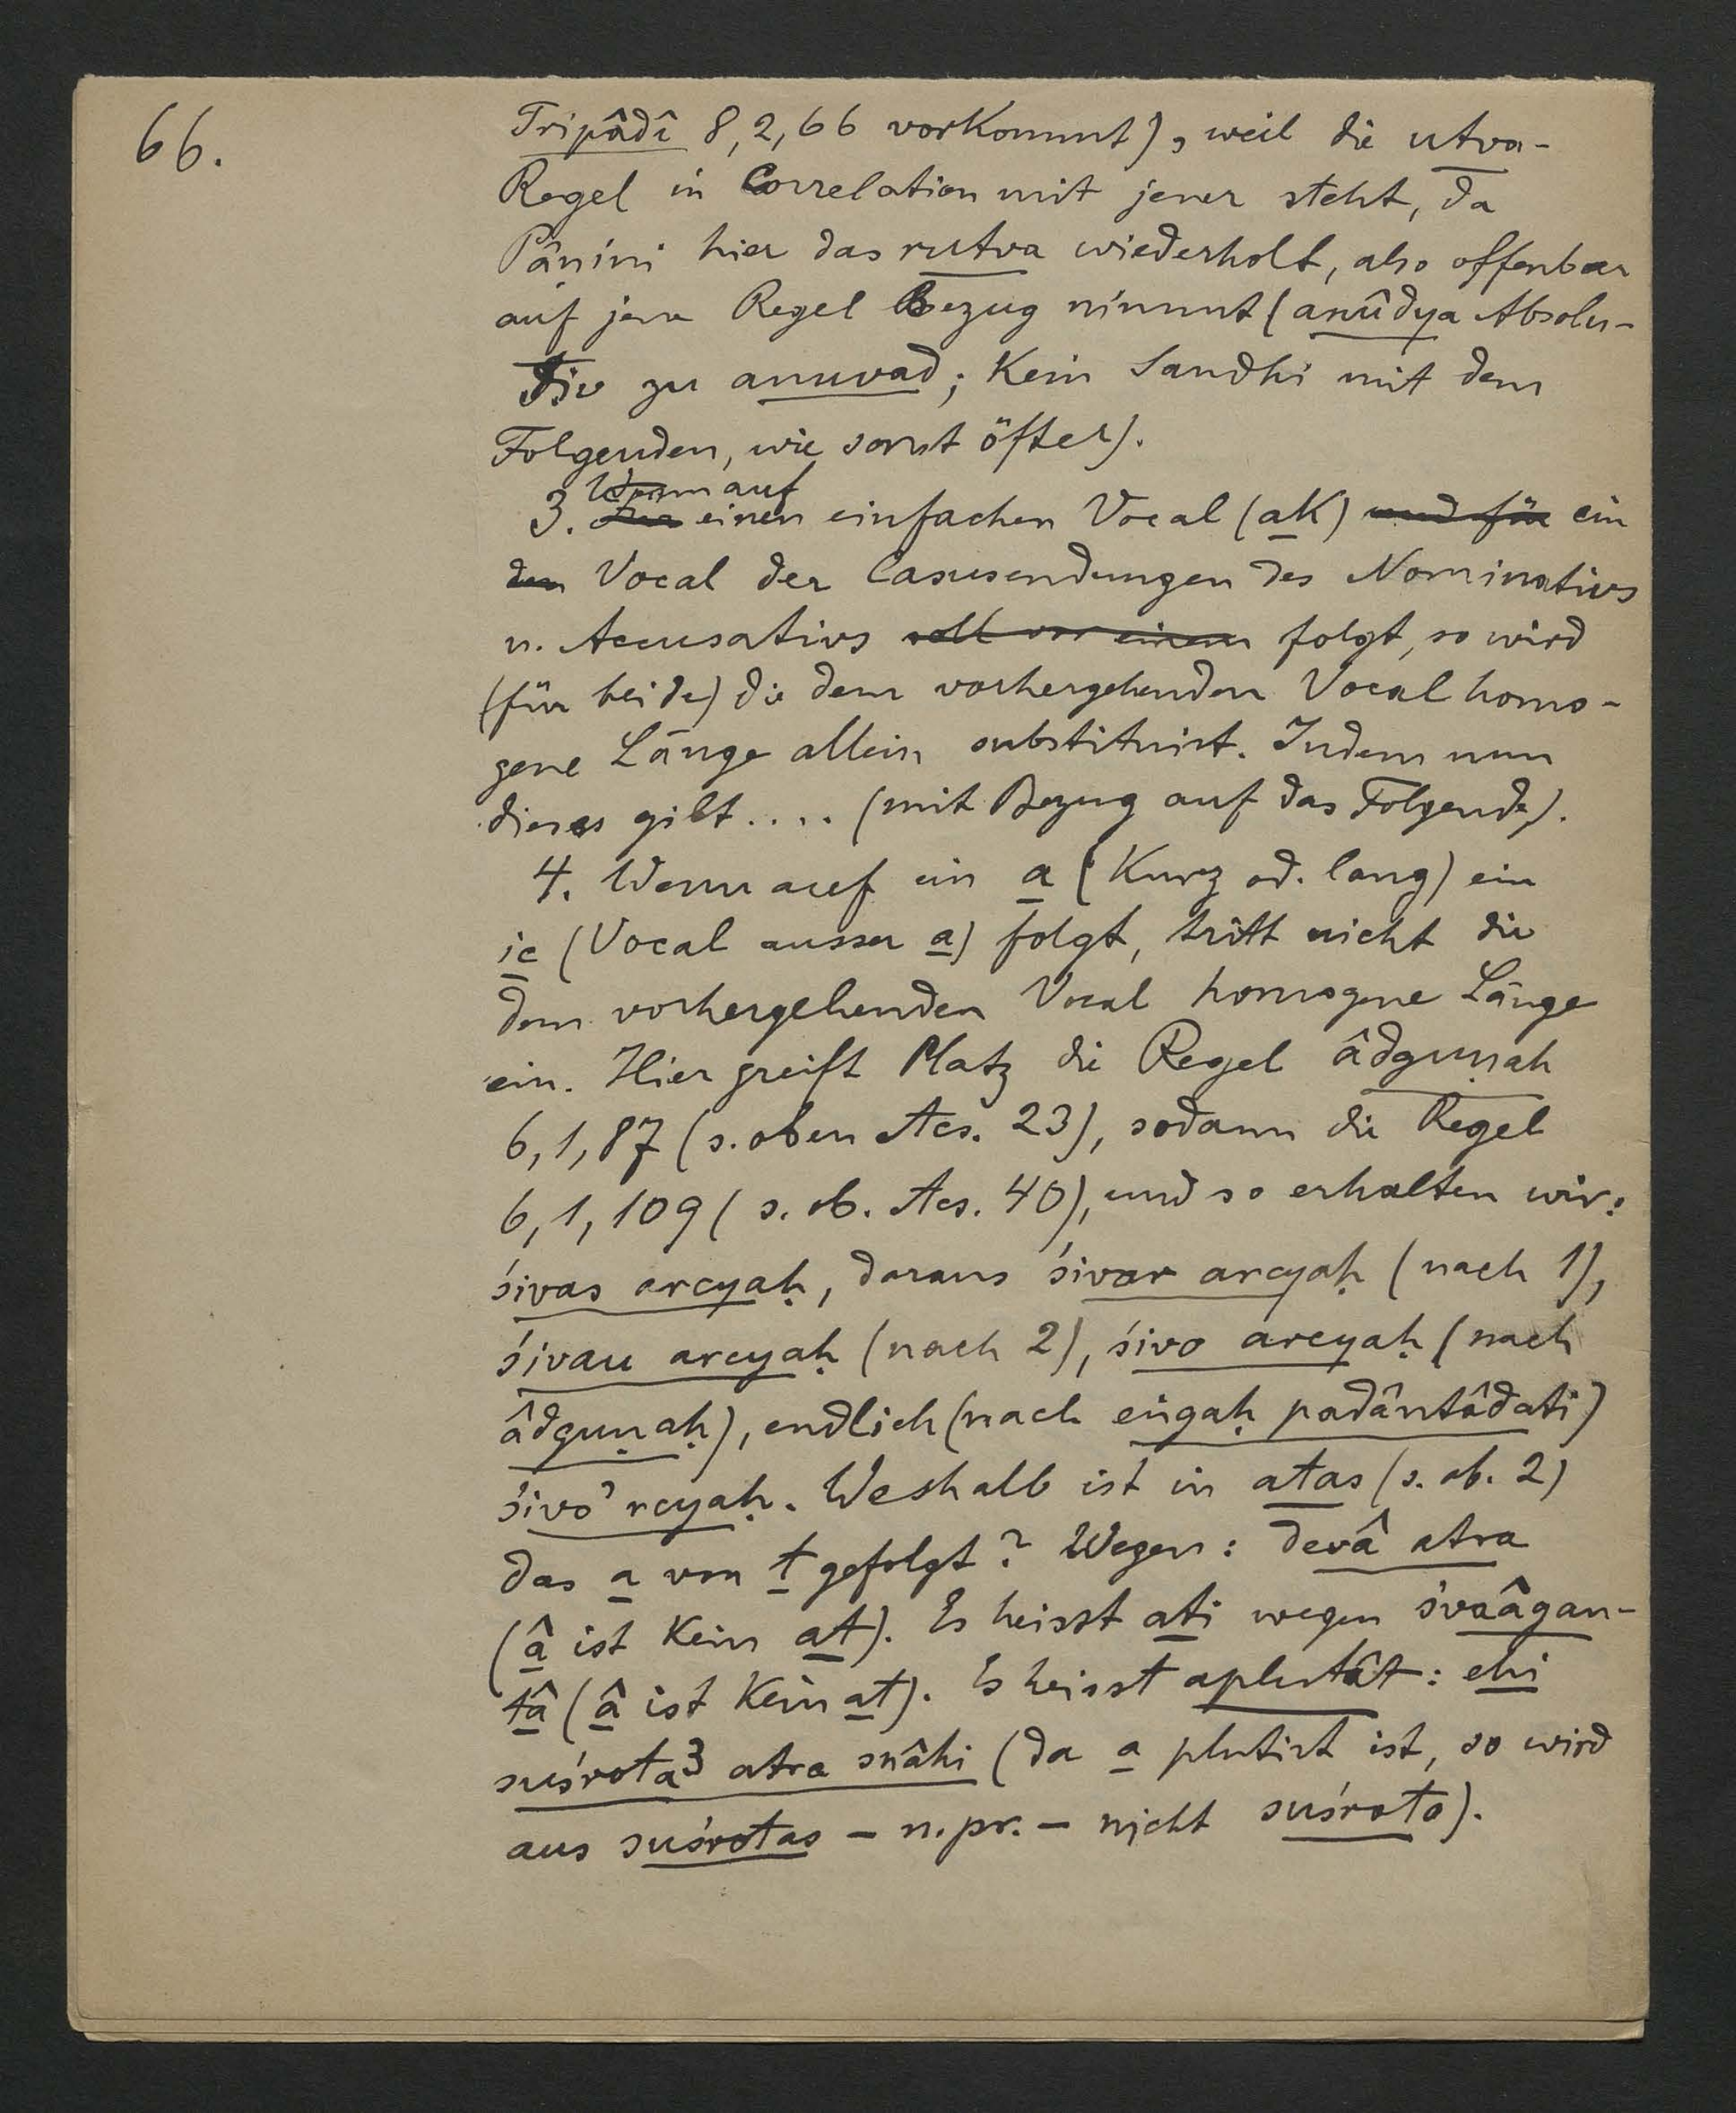 66.
Tripâdî 8, 2, 66 vorkommt), weil die utva-
Regel in Correlation mit jener steht, da
Pâṇini hier das rutva wiederholt, also offenbar
auf jene Regel Bezug nimmt (anûdya Absolu-
tiv zu anuvad; kein Sandhi mit dem
Folgenden, wie sonst öfter).
Wenn auf
3. Für einen einfachen Vocal (ak) und für ein
den Vocal der Casusendungen des Nominativs
u. Accusativs soll vor einem folgt, so wird
(für beide) die dem vorhergehenden Vocal homo-
gene Länge allein substituirt. Indem nun
dieses gilt.... (mit Bezug auf das Folgende).
4. Wenn auf ein a (kurz od. lang) ein
ic (Vocal ausser a) folgt, tritt nicht die
dem vorhergehenden Vocal homogene Länge
ein. Hier greift Platz die Regel âdguṇah
6, 1, 87 (s. oben Acs. 23), sodann die Regel
6, 1, 109 (s. ob. Acs. 40), und so erhalten wir:
śivas arcyaḥ, daraus śivar arcyaḥ (nach 1),
śivau arcyaḥ (nach 2), śivo arcyaḥ (nach
âdguṇaḥ), endlich (nach eṅgaḥ padântâdati)
śivo' rcyaḥ. Weshalb ist in atas (s. ob. 2)
das a von t gefolgt? Wegen: devâ atra
(â ist kein at). Es heisst ati wegen śvaâgan-
tâ (â ist kein at). Es heisst aplutât: ehi
suśrota3 atra snâhi (da a plutirt ist, so wird
aus suśrotas - n. pr. - nicht suśroto).